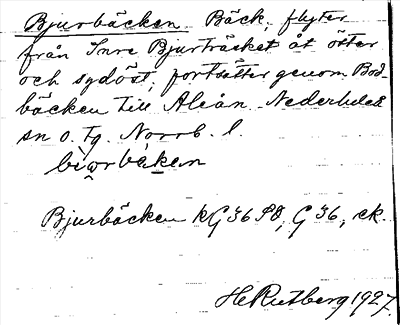 Bjurbäcken. Bäck, flyter
från Inre Bjurträsket åt öster
och sydöst, fortsätter genom Bod-
bäcken till Aleån. Nederluleå
sn o. tg. Norrb. l.
Bjurbäcken kG36SO, G36, ek.
H Rutberg 1927.